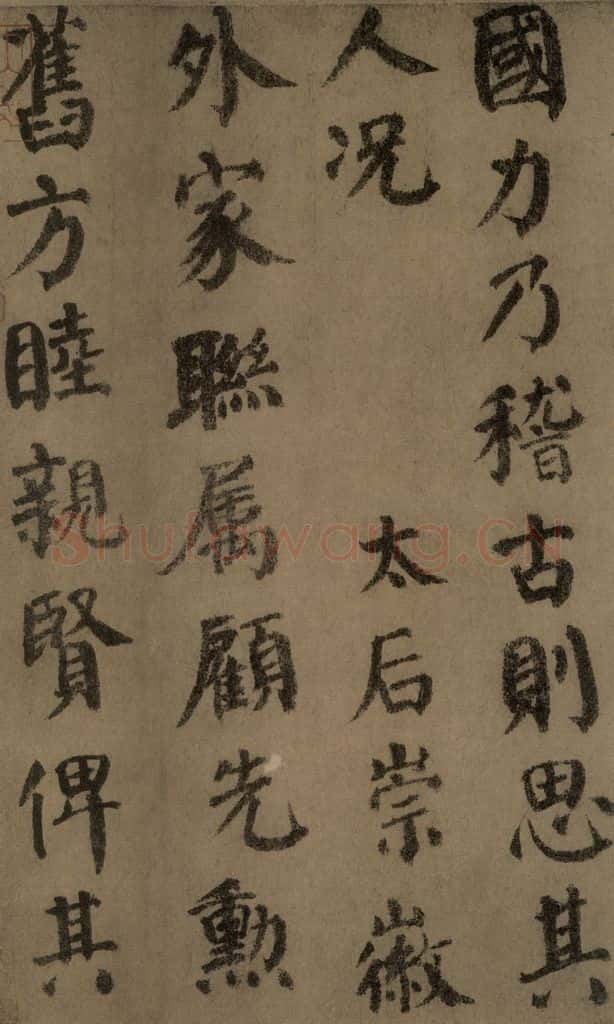 國力乃稽古則思其
人况太后崇徽
外家聯属顧先勲
舊方睦親賢俾其
Shufawang.CN